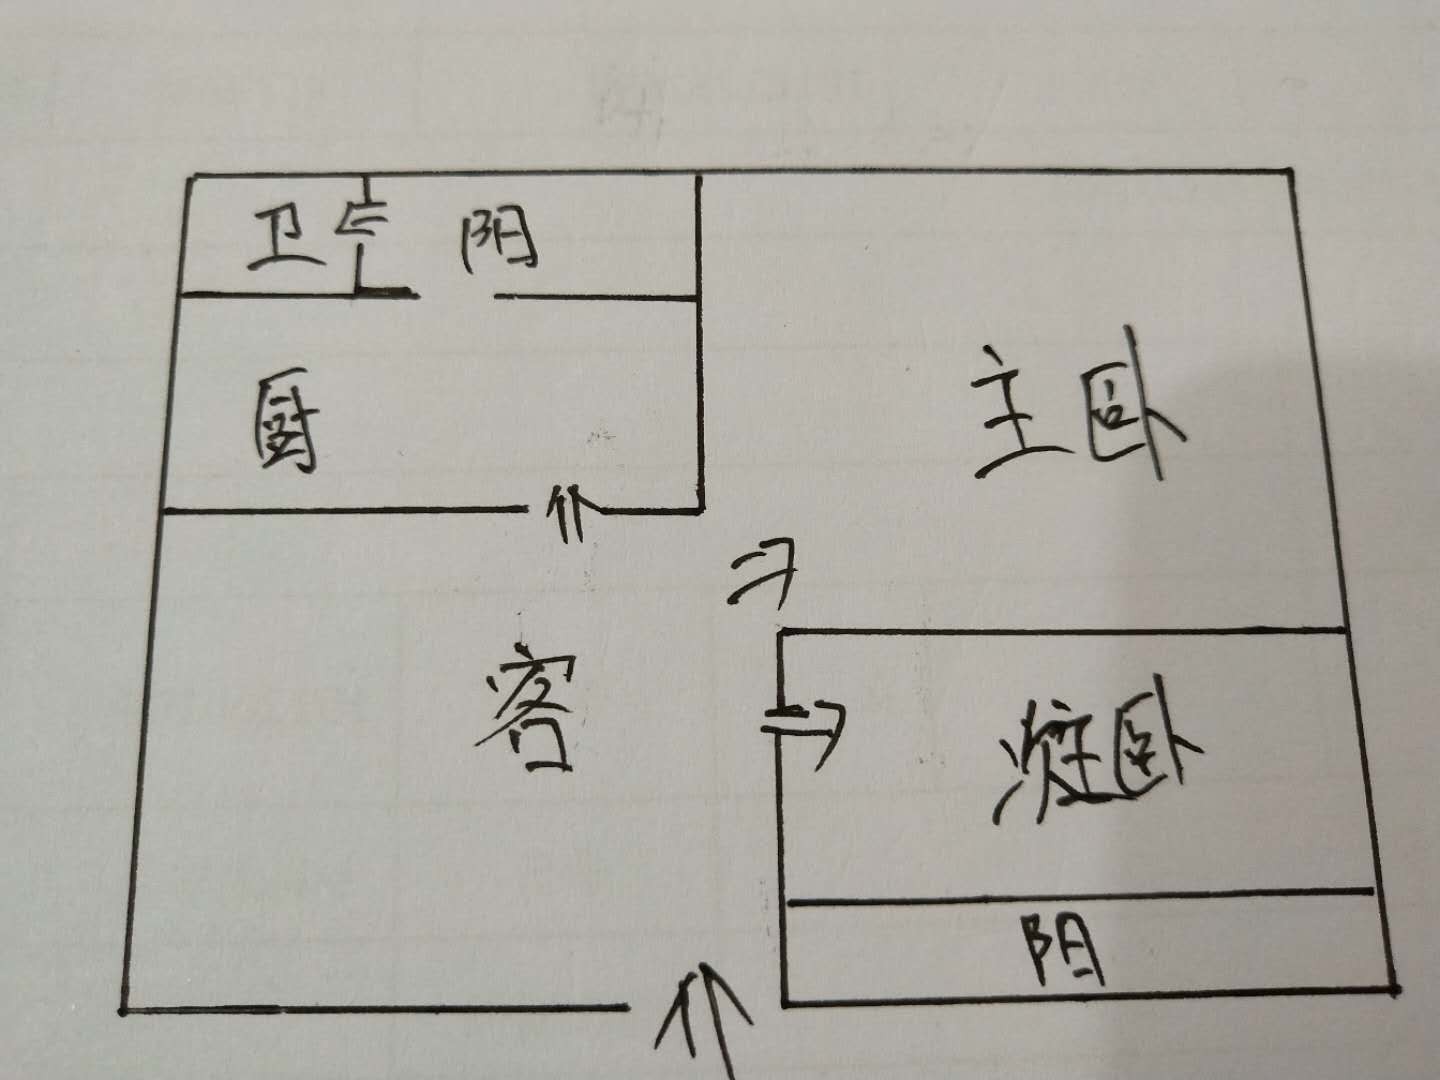 卫 阳
厨
主卧
客
次卧
阳